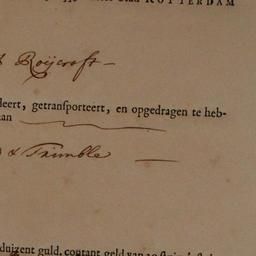 Stad ROTTERDAM
& Roijcroft —
deert, getransporteert, en opgedragen te heb-
aan
& Trimble —
duizent guld, contant geld van 20 stuivers